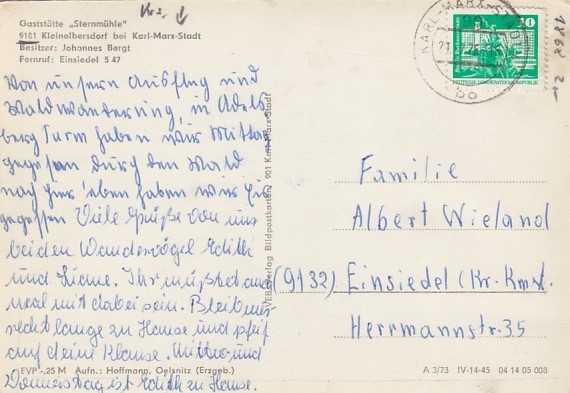 Gaststätte „Sternmühle"
9101 Kleinolbersdorf bei Karl-Marx-Stadt
Besitzer: Johannes Bergt
Fernruf: Einsiedel 5 47
Von unsern Ausflug und
Waldwanderung, in Adels
berg Turm haben wir Mittag
gegessen durch den Wald
nach hier eben haben wir Eis
gegessen Viele Grüße von uns
beiden Wandervögel Edith
und Liane. Ihr müßtet auch
mal mit dabei sein. Bleib nur
recht lange zu Hause und pfeif
auf deine Klause. Mittwo und
Donnerstag ist Edith zu Hause.
VEB Verlag Bildpostkarten 901 Karl-Marx-Stadt
KARL-MARX-STADT
10
DEUTSCHE DEMOKRATISCHE REPUBLIK
1868
Familie
Albert Wieland
(9132) Einsiedel (Kr. Kmst.
Herrmannstr. 35
EVP -,25 M Aufn.: Hoffmann, Oelsnitz (Erzgeb.)
A 3/73 IV-14-45 04 14 05 008